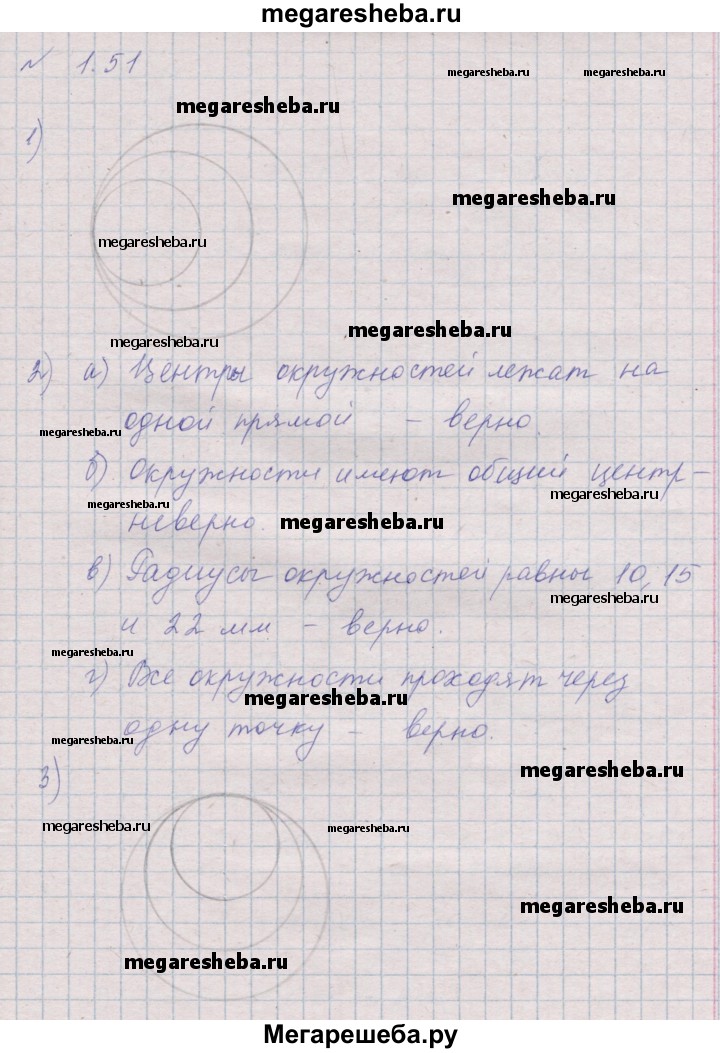 megaresheba.ru
№ 1.51
megaresheba.ru megaresheba.ru
megaresheba.ru
1)
megaresheba.ru
megaresheba.ru
megaresheba.ru
megaresheba.ru
2) а) Центры окружностей лежат на
одной прямой - верно.
megaresheba.ru
б) Окружности имеют общий центр -
megaresheba.ru
megaresheba.ru
неверно.
megaresheba.ru
в) Радиусы окружностей равны 10, 15
megaresheba.ru
и 22 мм - верно.
megaresheba.ru
г) Все окружности проходят через
megaresheba.ru
одну точку - верно.
megaresheba.ru
3)
megaresheba.ru
megaresheba.ru
megaresheba.ru
megaresheba.ru
megaresheba.ru
Мегарешеба.ру